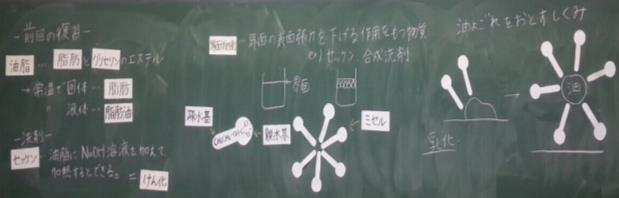 －前回の復習－
油脂 … 脂肪酸とグリセリンのエステル
→ 常温で固体 … 脂肪
〃 液体 … 脂肪油
－洗剤－
セッケン … 油脂にNaOH溶液を加えて
加熱するとできる。= けん化
界面活性剤 － 界面の表面張力を下げる作用をもつ物質
セッケン、合成洗剤
界面
疎水基
親水基
ミセル
油よごれをおとすしくみ
油
乳化